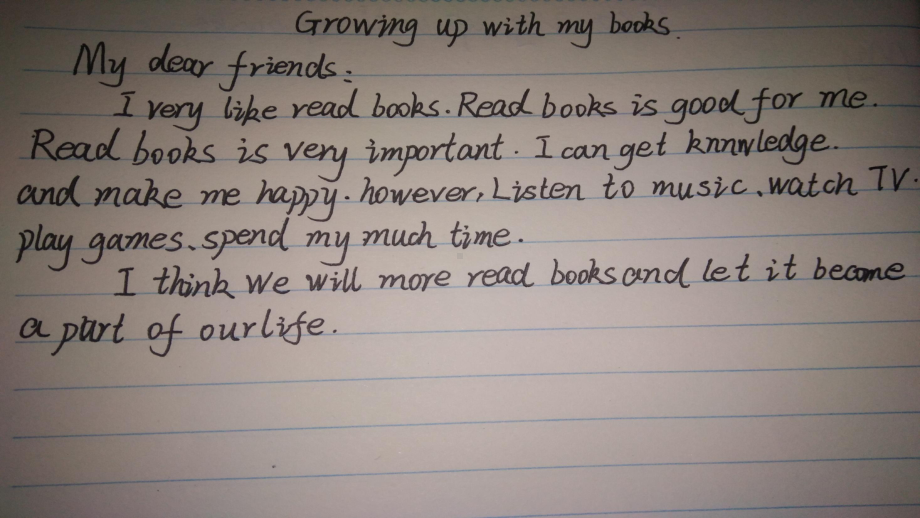 Growing up with my books.
My dear friends:
I very like read books. Read books is good for me.
Read books is very important. I can get knnwledge.
and make me happy. however, Listen to music、watch TV.
play games、spend my much time.
I think we will more read books and let it become
a part of our life.